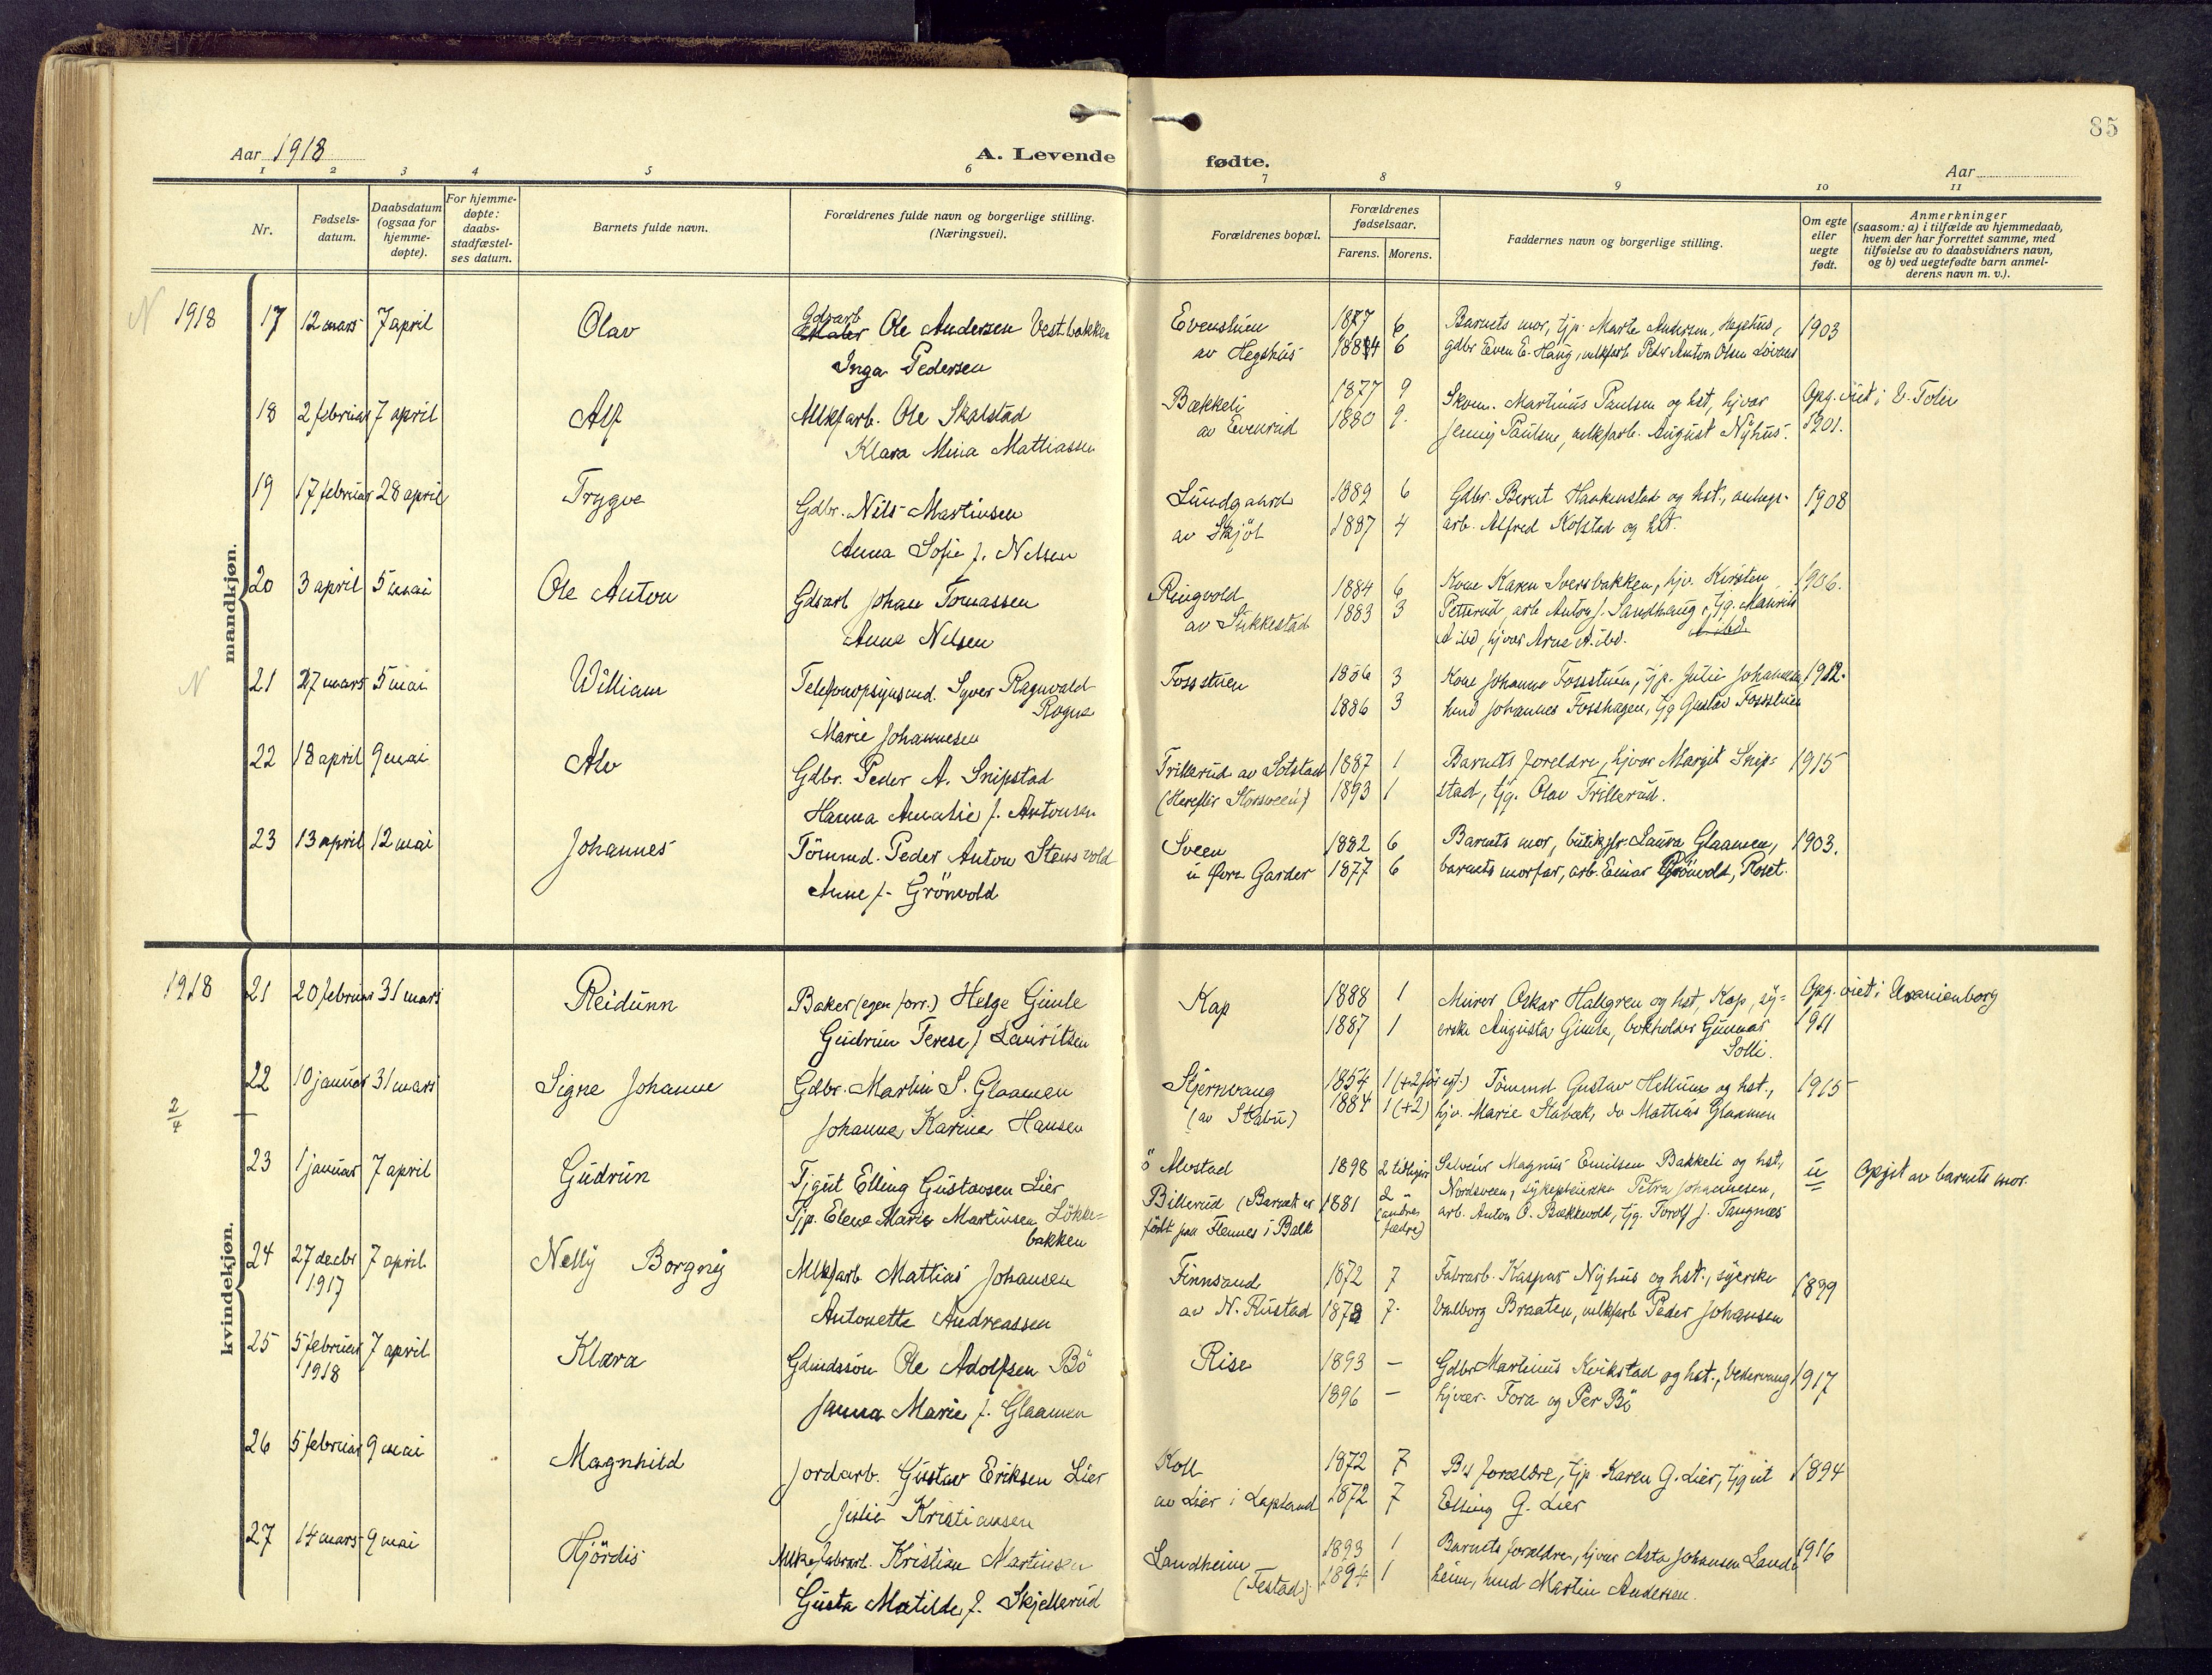 85
Aar 1918
A. Levende fødte.
Aar
1 2 3 4 5 6 7 8 9 10 11
Nr.
Fødsels-
datum.
Daabsdatum
(ogsaa for
hjemme-
døpte).
For hjemme-
døpte:
daabs-
stadfæstel-
ses datum.
Barnets fulde navn.
Forældrenes fulde navn og borgerlige stilling.
(Næringsvei).
Forældrenes bopæl.
Forældrenes
fødselsaar.
Farens. Morens.
Faddernes navn og borgerlige stilling.
Om egte
eller
uegte
født.
Anmerkninger
(saasom: a) i tilfælde av hjemmedaab,
hvem der har forrettet samme, med
tilføielse av to daabsvidners navn,
og b) ved uegtefødte barn anmel-
derens navn m. v.).
mandkjøn.
N 1918 17 12 mars 7 april Olav Gdsarb Ole Andersen Vestbakken Evenstuen 1877 6 Barnets mor, tjp. Marte Andersen, Hegshus, 1903
Inga Pedersen av Hegshus 1884 6 gdbr Even E. Haug, mlkfarb Peder Anton Olsen
18 2 februar 7 april Alf Mlkfarb. Ole Skalstad Bækkeli 1877 9 Skom. Martinus Paulsen og hst, hjvær Opg. viet i V. Toten
Klara Mina Mathiassen av Evenrud 1880 9. Jenny Paulsen, mlkfarb. August Nyhus. 1901.
19 17 februar 28 april Trygve Gdbr. Nils Martinsen Lundgaard 1889 6 Gdbr. Bernt Haakenstad og hst., anlægs- 1908
Anna Sofie f. Nelsen av Skjöl 1887 4 arb. Alfred Kolstad og hst.
20 3 april 5 mai Ole Anton Gdsarb Johan Tomassen Ringvold 1884 6 Kone Karen Iversbakken, hjv. Kirsten 1906.
Anna Nelsen av Sukkestad 1883 3 Petterud, arb Anton J. Sandhaug, tjg. Mauritz
A ibd, hjvær Arne A. ibd.
N 21 27 mars 5 mai William Telefonopsynsmd. Syver Ragnvald Fossstuen 1886 3 Kone Johanne Fossstuen, tjp. Julie Johannesen 1912.
Rogne
Marie Johannesen 1886 3 hmd Johannes Fosshagen, tjg Gustav Fossstuen
22 18 april 9 mai Alv Gdbr. Peder A. Snipstad Trillerud av Sotstad 1887 1 Barnets foreldre, hjvær Margit Snip- 1915
Hanna Amalie f. Antonsen (Herefter Storsveen) 1893 1 stad, tjg. Olav Trillerud.
23 13 april 12 mai Johannes Tömmd. Peder Anton Stensvold Sveen 1882 6 Barnets mor, butikfr. Laura Glaamen, 1903.
Anne f. Grönvold u Övre Garder 1877 6 barnets morfar, arb. Einar Grönvold, Roset.
kvindekjøn.
1918 21 20 februar 31 mars Reidunn Baker (egen forr.) Helge Gimle Kap 1888 1 Murer Oskar Hallgren og hst, Kap, sy- Opg. viet i Uranienborg
Gudrun Terese f Lauritsen 1887 1 erske Augusta Gimle, bokholder Gunnar 1911
Solli.
22 10 januar 31 mars Signe Johanne Gdbr. Martin S. Glaamen Stjernvang 1854 1 (+2 för egt.) Tömmd Gustav Hellum og hst., 1915
2/4 Johanne Karine Hansen (av Stabu) 1884 1 (+2) hjv. Marie Stabæk, do Mattias Glaamen
23 1 januar 7 april Gudrun Tjgut Elling Gustavsen Lier ö Alvstad 1898 2 tidligere Selveier Magnus Emilsen Bakkeli og hst, u Opgit av barnets mor.
Tjp. Elene Marie Martinsen Lökke- Billerud (Barnet er 1881 2 Nordsveen, sykepleierske Petra Johannesen,
bakken födt paa Flennes i Balk (andre fædre) arb. Anton O. Bækkevold, tjg. Torolf J. Taugnæs
24 27 decbr 7 april Nelly Borgny Mlkfarb Mattias Johansen Finnsand 1872 7 Fabrarb. Kaspar Nyhus og hst., syerske 1899
1917 Antonette Andreassen av N. Rustad 1878 7. Valborg Braaten, mlkfarb Peder Johansen
25 5 februar 7 april Klara Gdmdssön Ole Adolfsen Bö Rise 1893 — Gdbr Martinus Kvikstad og hst., Vedervang 1917
1918 Janna Marie f. Glaamen 1896 — hjvær. Tora og Per Bö
26 5 februar 9 mai Magnhild Jordarb. Gustav Eriksen Lier Koll 1872 7 Bs forældre, tjp. Karen G. Lier, tjgut 1894
Julie Kristiansen av Lier i Lapland 1872 7 Elling G. Lier
27 14 mars 9 mai Hjördis Mlkefabrarb. Kristian Martinsen Landheim 1893 1 Barnets forældre, hjvær Asta Johansen Land- 1916
Gusta Matilde f. Skjellerud (Festad). 1894 1 heim, hmd Martin Andersen.